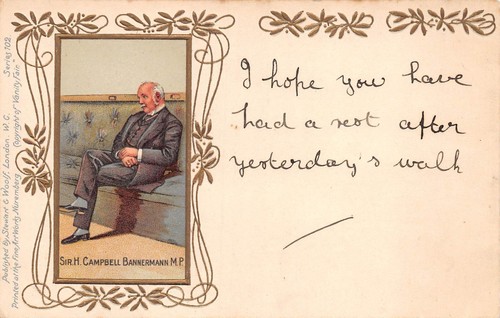 Published by Stewart & Woolf, London. W.C. Series 102
Printed at the Fine Art Works, Nuremberg Copyright of "Vanity Fair"
SIR. H. CAMPBELL BANNERMANN M.P.
I hope you have
had a rest after
yesterday's walk